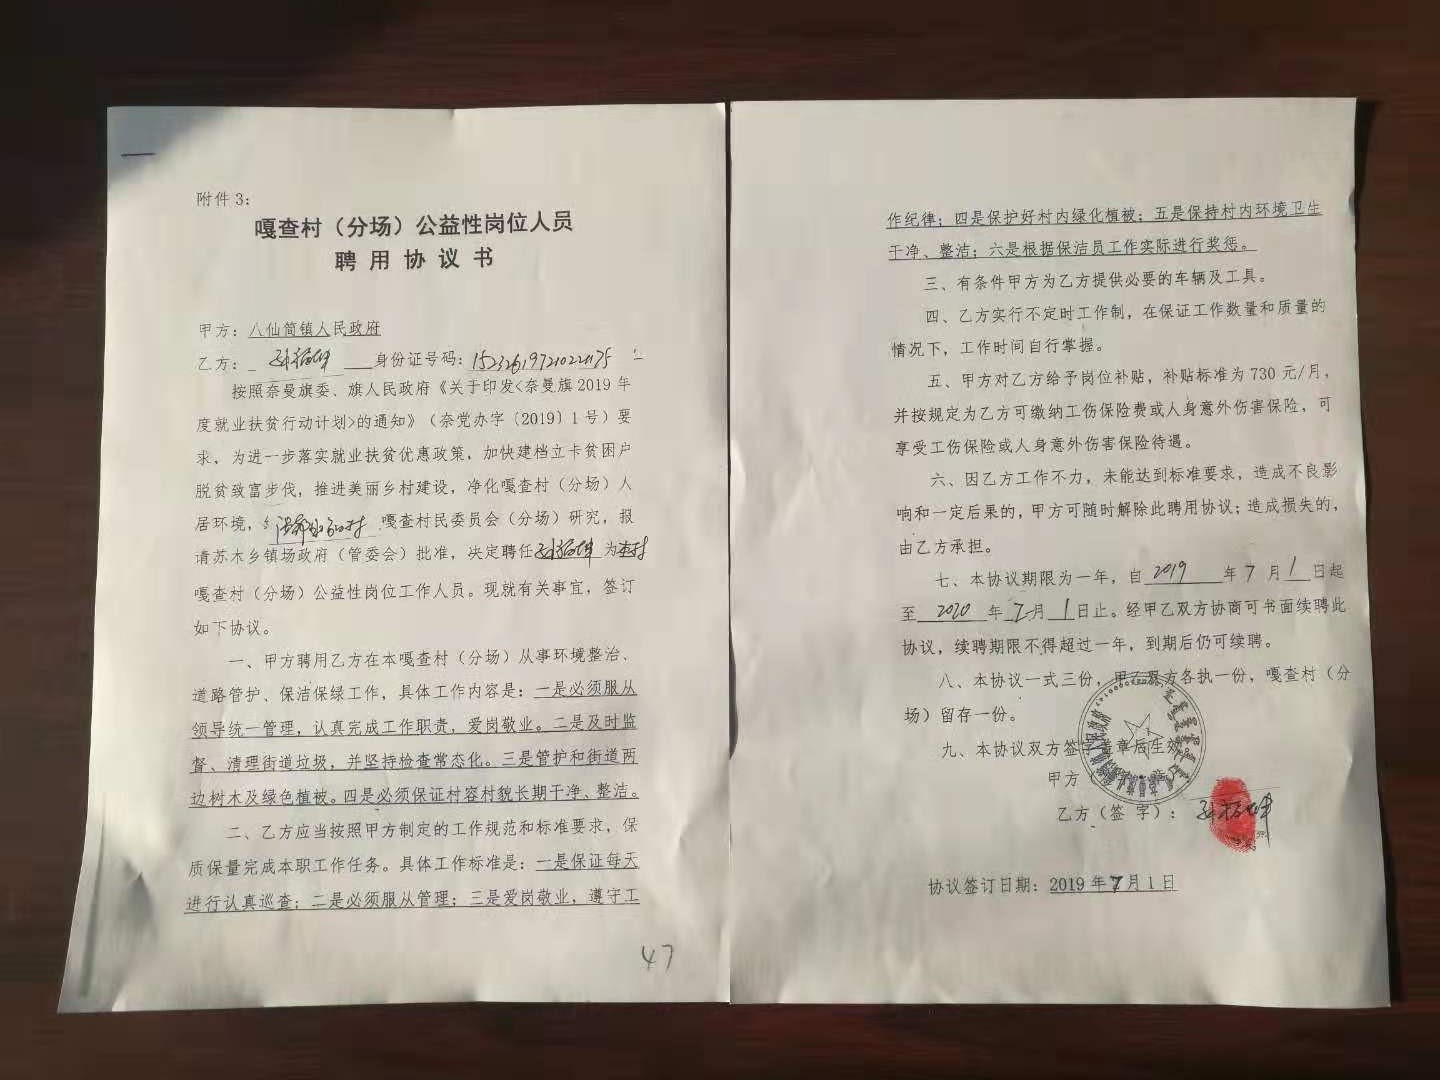 附件 3：
嘎查村（分场）公益性岗位人员
聘 用 协 议 书
甲方：八仙筒镇人民政府
乙方： 身份证号码：
按照奈曼旗委、旗人民政府《关于印发<奈曼旗 2019 年
度就业扶贫行动计划>的通知》（奈党办字〔2019〕1 号）要
求，为进一步落实就业扶贫优惠政策，加快建档立卡贫困户
脱贫致富步伐，推进美丽乡村建设，净化嘎查村（分场）人
居环境， 嘎查村民委员会（分场）研究，报
请苏木乡镇场政府（管委会）批准，决定聘任 为本村
嘎查村（分场）公益性岗位工作人员。现就有关事宜，签订
如下协议。
一、甲方聘用乙方在本嘎查村（分场）从事环境整治、
道路管护、保洁保绿工作，具体工作内容是：一是必须服从
领导统一管理，认真完成工作职责，爱岗敬业。二是及时监
督、清理街道垃圾，并坚持检查常态化。三是管护和街道两
边树木及绿色植被。四是必须保证村容村貌长期干净、整洁。
二、乙方应当按照甲方制定的工作规范和标准要求，保
质保量完成本职工作任务。具体工作标准是：一是保证每天
进行认真巡查；二是必须服从管理；三是爱岗敬业，遵守工
47
作纪律；四是保护好村内绿化植被；五是保持村内环境卫生
干净、整洁；六是根据保洁员工作实际进行奖惩。
三、有条件甲方为乙方提供必要的车辆及工具。
四、乙方实行不定时工作制，在保证工作数量和质量的
情况下，工作时间自行掌握。
五、甲方对乙方给予岗位补贴，补贴标准为 730 元/月，
并按规定为乙方可缴纳工伤保险费或人身意外伤害保险，可
享受工伤保险或人身意外伤害保险待遇。
六、因乙方工作不力，未能达到标准要求，造成不良影
响和一定后果的，甲方可随时解除此聘用协议；造成损失的，
由乙方承担。
七、本协议期限为一年，自 2019 年 7 月 1 日起
至 2020 年 7 月 1 日止。经甲乙双方协商可书面续聘此
协议，续聘期限不得超过一年，到期后仍可续聘。
八、本协议一式三份，甲乙双方各执一份，嘎查村（分
场）留存一份。
九、本协议双方签字盖章后生效
甲方
乙方（签 字）：
协议签订日期：2019 年 7 月 1 日